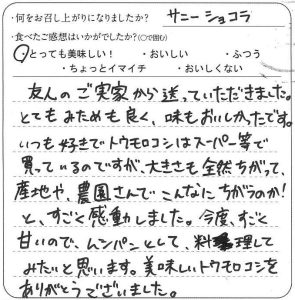 ・何をお召し上がりになりましたか? サニーショコラ
・食べたご感想はいかがでしたか?(○で囲む)
・とっても美味しい! ・おいしい ・ふつう
・ちょっとイマイチ ・おいしくない
友人のご実家から送っていただきました。
とてもみためも良く、味もおいしかったです。
いつも好きでトウモロコシはスーパー等で
買っているのですが、大きさも全然ちがって、
産地や、農園さんでこんなにちがうのか!
と、すごく感動しました。今度、すごく
甘いので、ムンパンとして、料理して
みたいと思います。美味しいトウモロコシを
ありがとうございました。